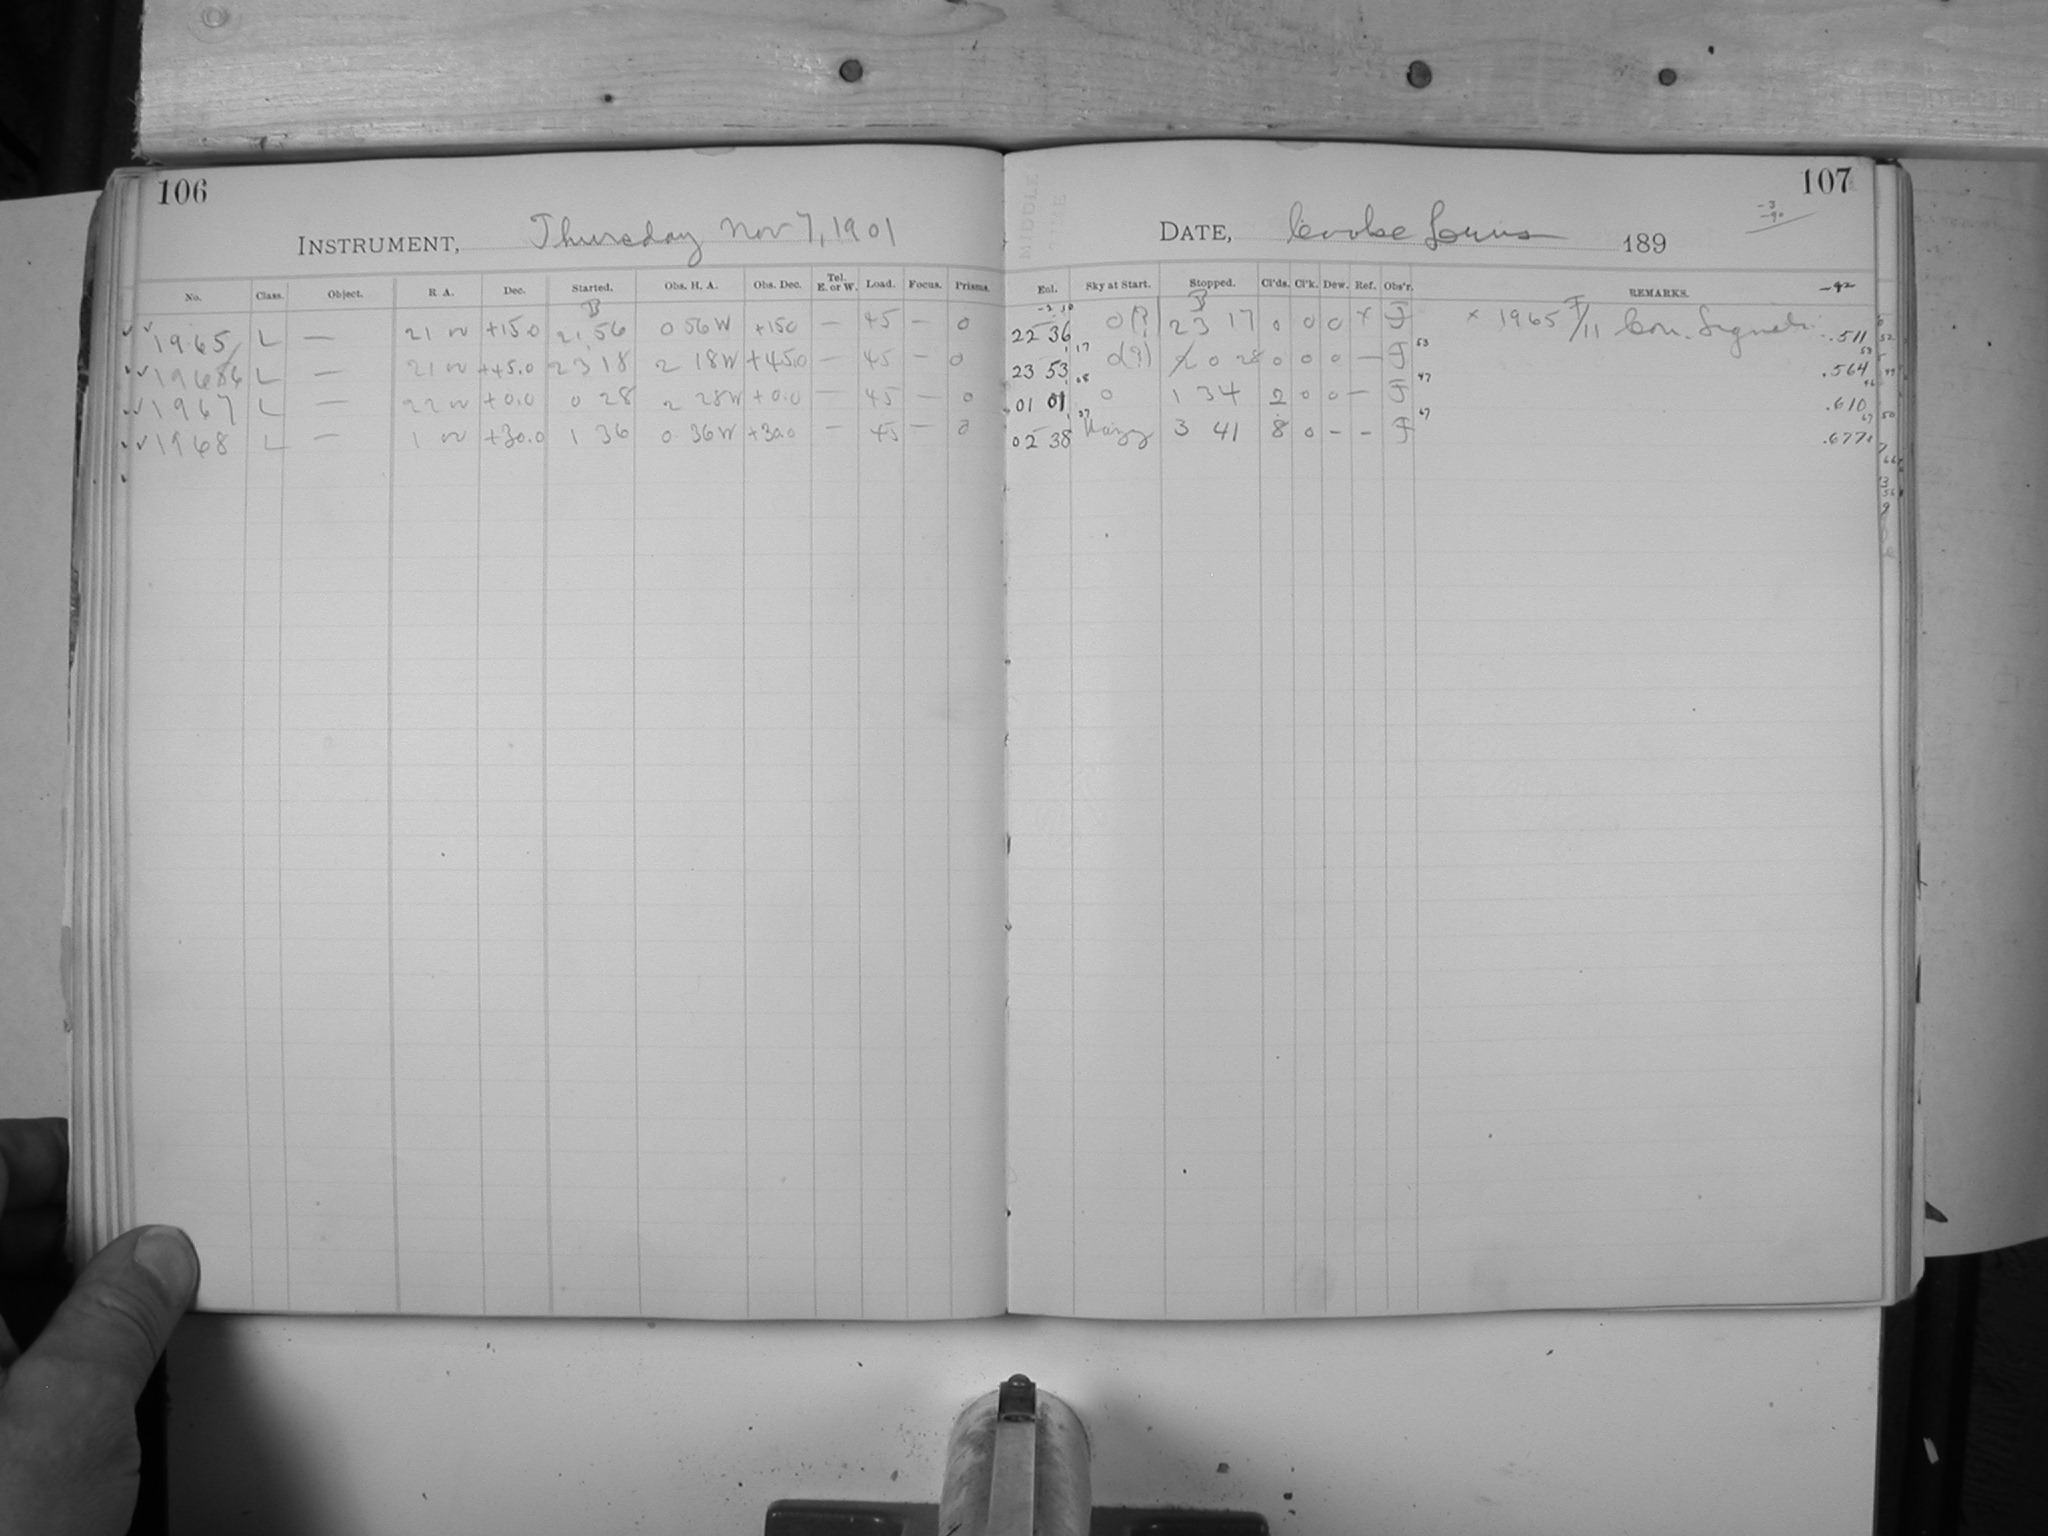 106
INSTRUMENT, Thursday Nov 7, 1901
No. Class. Object. R. A. Dec. Started. Obs. H. A. Obs. Dec. Tel. E. or W. Load. Focus. Prisms.
1965 L — 21 +15.0 21 56 0 56 W +150 — 45 — 0
1966 L — 21 +45.0 23 18 2 18 W +45.0 — 45 — 0
1967 L — 22 +0.0 0 28 2 28 W +0.0 — 45 — 0
1968 L — 1 +30.0 1 36 0 36 W +30.0 — 45 — 0
107
-3
-90
DATE, Cooke Lens 189
Eol. Sky at Start. Stopped. Cl'ds. Cl'k. Dew. Ref. Obs'r. REMARKS. -92
22 36 0(?) 23 17 0 0 0 x F x 1965 F/11 Con. .511
23 53 17 0(?) 0 28 0 0 0 — F 53 .564
01 01 08 0 1 34 2 0 0 — F 47 .610
02 38 37 Hazy 3 41 8 0 - - F 67 .677